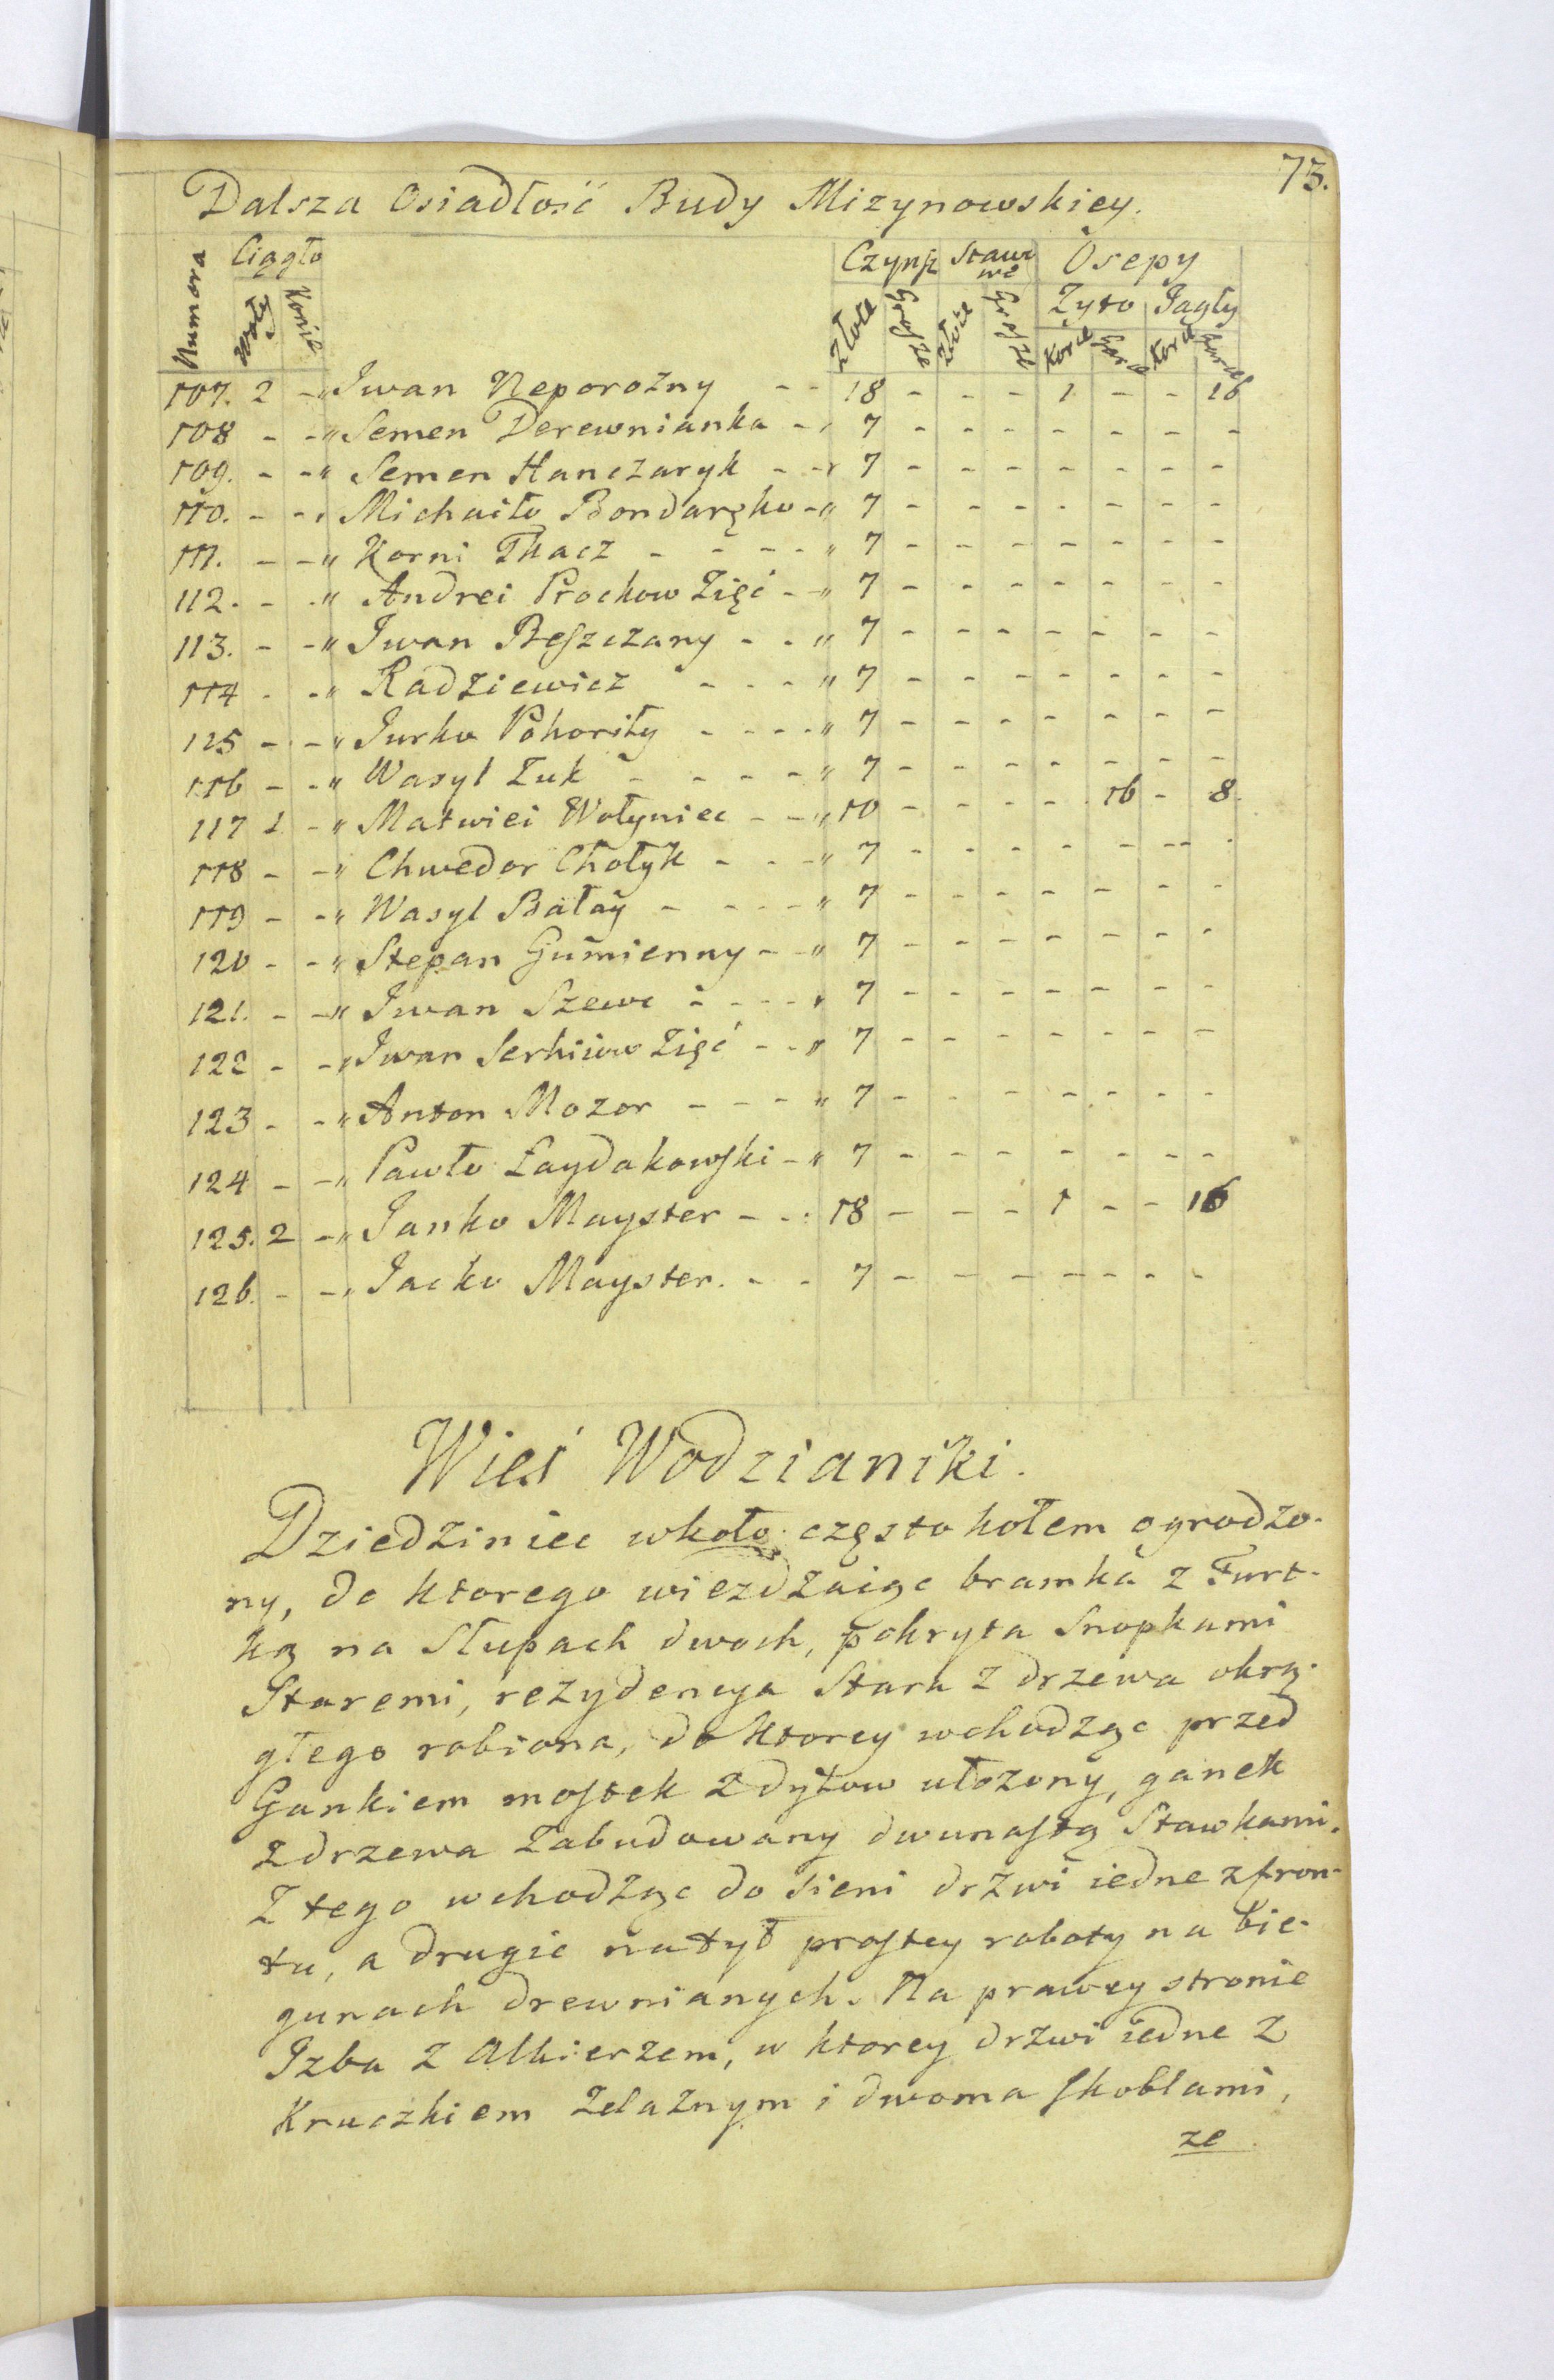 73.
Dalsza Osiadłość Budy Mizynowskiey.
Numora Ciągło Czynsz Stawo we Osepy
Konie Złote Grosze Złote Grosze Żyto Jagły
Korce Garce Korce Garce
107. 2 - " Iwan Neporożny - - 18 - - - 1 - - 16
108 - - " Semen Derewnianka - " 7 - - - - - - -
109. - - " Semen Hanczaryk - - " 7 - - - - - - -
110. - - " Michaiło Bondaręko - " 7 - - - - - - -
111. - - " Korni Tkacz - - - - " 7 - - - - - - -
112. - - " Andrei Prochow Zięć - " 7 - - - - - - -
113. - - " Iwan Beszczany - - " 7 - - - - - - -
114 - - " Radziewicz - - - " 7 - - - - - - -
115 - - " Jurko Pohoriły - - - - " 7 - - - - - - -
116 - - " Wasyl Zuk - - - - - " 7 - - - - - - -
117 1 - " Matwiei Wołyniec - - " 10 - - - - 16 - 8.
118 - - " Chwedor Chołyk - - - " 7 - - - - - - -
119 - - " Wasyl Bałay - - - - " 7 - - - - - - -
120 - - " Stepan Gumienny - - " 7 - - - - - - -
121. - - " Iwan Szewc - - - - " 7 - - - - - - -
122 - - " Iwan Serhiiow Zięć - - " 7 - - - - - - -
123 - - " Anton Mozor - - - " 7 - - - - - - -
124 - - " Pawło Łaydakowski - " 7 - - - - - - -
125. 2 - " Janko Mayster - - : 18 - - - 1 - - 16
126. - - " Jacko Mayster. - - 7 - - - - - - -
Wieś Wodzianiki.
Dziedziniec wkoło częstokołem ogrodzo-
ny, do ktorego wiezdżaiąc bramka z Furt-
ką na Słupach dwoch, pokryta Snopkami
Staremi, rezydencya Stara z drzewa okrą-
głego robiona, do ktorey wchodząc przed
Gankiem mostek z dylow ułożony, ganek
z drzewa zabudowany dwunastą Stawkami.
Z tego wchodząc do sieni drzwi iedne z fron-
tu, a drugie na tył prostey roboty na bie-
gunach drewnianych. Na prawey stronie
Izba z Alkierzem, w ktorey drzwi iedne z
Kruczkiem Żelaznym i dwoma skoblami,
ze